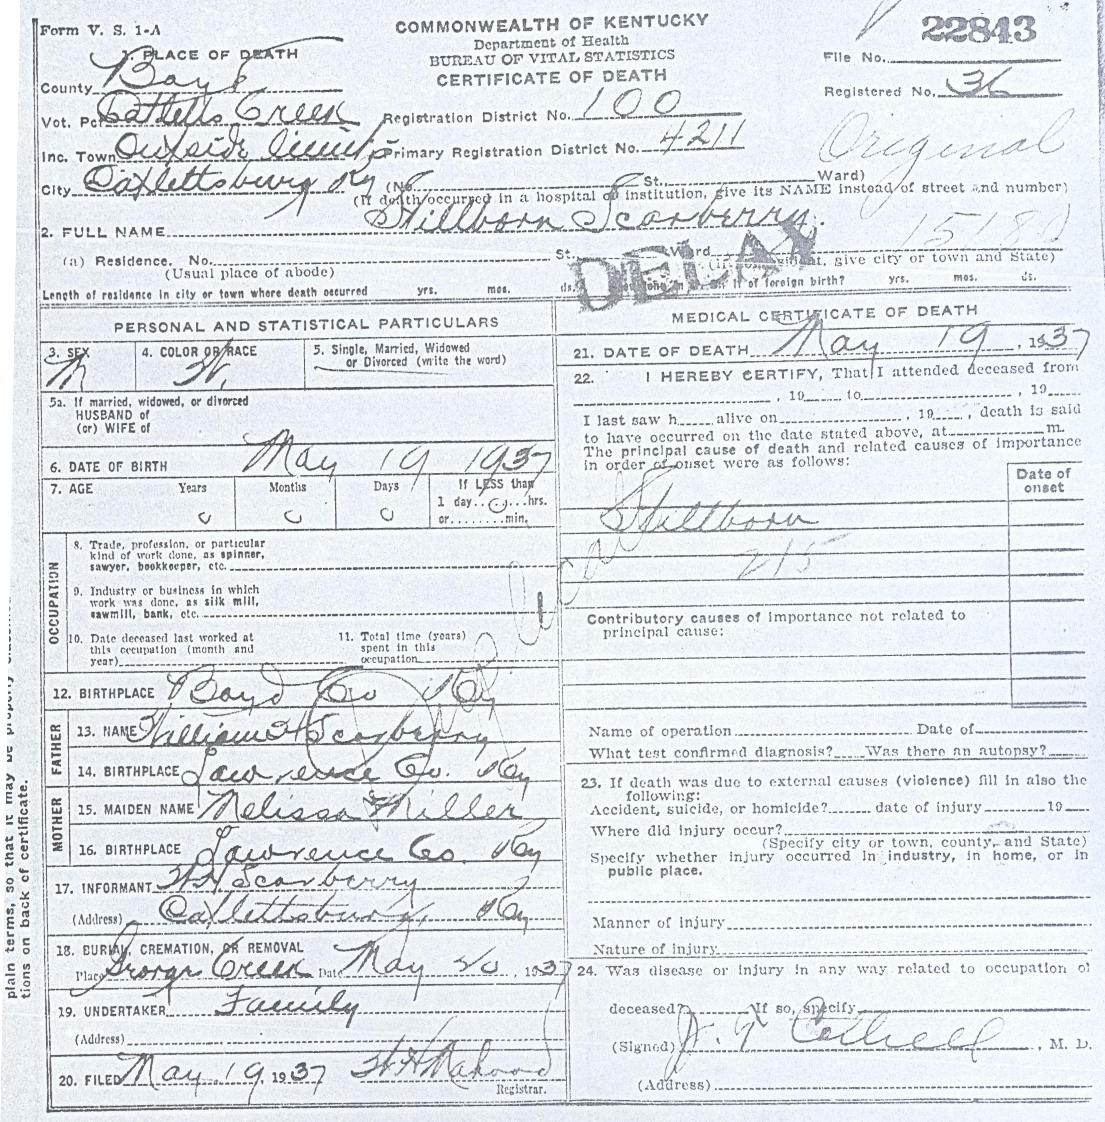 Form V. S. 1-A
COMMONWEALTH OF KENTUCKY
Department of Health
BUREAU OF VITAL STATISTICS
CERTIFICATE OF DEATH
22843
File No.
Registered No. 36
Original
1. PLACE OF DEATH
County Boyd
Vot. Pct Catletts Creek
Registration District No. 100
Inc. Town Outside limits
Primary Registration District No. 4211
City Catlettsburg Ky (No. St., Ward)
(If death occurred in a hospital or institution, give its NAME instead of street and number)
2. FULL NAME Stillborn Scarberry.
15180
(a) Residence. No. St. Ward
(Usual place of abode) give city or town and State)
DELAY
Length of residence in city or town where death occurred yrs. mos. ds. if of foreign birth? yrs. mos. ds.
PERSONAL AND STATISTICAL PARTICULARS
3. SEX M
4. COLOR OR RACE W.
5. Single, Married, Widowed
or Divorced (write the word)
5a. If married, widowed, or divorced
HUSBAND of
(or) WIFE of
6. DATE OF BIRTH May 19 1937
7. AGE Years Months Days If LESS than
0 0 0 1 day 0 hrs.
or min.
OCCUPATION
8. Trade, profession, or particular
kind of work done, as spinner,
sawyer, bookkeeper, etc.
9. Industry or business in which
work was done, as silk mill,
sawmill, bank, etc.
10. Date deceased last worked at
this occupation (month and
year)
11. Total time (years)
spent in this
occupation
12. BIRTHPLACE Boyd Co Ky
FATHER
13. NAME William H Scarberry
14. BIRTHPLACE Lawrence Co. Ky
MOTHER
15. MAIDEN NAME Melissa Miller
16. BIRTHPLACE Lawrence Co. Ky
17. INFORMANT W H Scarberry
(Address) Catlettsburg, Ky
18. BURIAL, CREMATION, OR REMOVAL
Place Georges Creek Date May 20, 1937
19. UNDERTAKER Family
(Address)
20. FILED May 19, 1937
Registrar.
MEDICAL CERTIFICATE OF DEATH
21. DATE OF DEATH May 19, 1937
22. I HEREBY CERTIFY, That I attended deceased from
, 19 to , 19
I last saw h alive on , 19 , death is said
to have occurred on the date stated above, at m.
The principal cause of death and related causes of importance
in order of onset were as follows:
Date of
onset
Stillborn
215
Contributory causes of importance not related to
principal cause:
Name of operation Date of
What test confirmed diagnosis? Was there an autopsy?
23. If death was due to external causes (violence) fill in also the
following:
Accident, suicide, or homicide? date of injury 19
Where did injury occur?
(Specify city or town, county, and State)
Specify whether injury occurred in industry, in home, or in
public place.
Manner of injury
Nature of injury
24. Was disease or injury in any way related to occupation of
deceased? If so, specify
(Signed) , M. D.
(Address)
plain terms, so that it may be properly
tions on back of certificate.